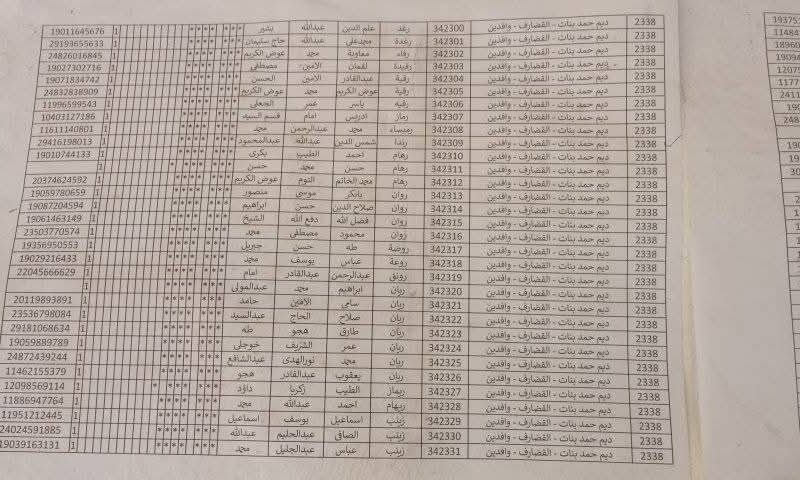 2338 ديم حمد بنات - القضارف - وافدين 342300 رغد علم الدين عبدالله بشير *** **** 1 19011645676
2338 ديم حمد بنات - القضارف - وافدين 342301 رغدة محمدعلي عبدالله حاج سليمان *** **** 1 29193655633
2338 ديم حمد بنات - القضارف - وافدين 342302 رفاء معاوية محمد عوض الكريم *** **** 1 24826016845
2338 ديم حمد بنات - القضارف - وافدين 342303 رفيدة لقمان الامين مصطفى *** **** 1 19027302716
2338 ديم حمد بنات - القضارف - وافدين 342304 رقية عبدالقادر الامين الحسن *** **** 1 19071834742
2338 ديم حمد بنات - القضارف - وافدين 342305 رقية عوض الكريم محمد عوض الكريم *** **** 1 24832838909
2338 ديم حمد بنات - القضارف - وافدين 342306 رقيه ياسر عمر الجعلي *** **** 1 11996599543
2338 ديم حمد بنات - القضارف - وافدين 342307 رماز ادريس امام قسم السيد *** **** 1 10403127186
2338 ديم حمد بنات - القضارف - وافدين 342308 رميساء محمد عبدالرحمن محمد *** **** 1 11611140801
2338 ديم حمد بنات - القضارف - وافدين 342309 رندا شمس الدين عبدالله عبدالمحمود *** **** 1 29416198013
2338 ديم حمد بنات - القضارف - وافدين 342310 رهام احمد الطيب بكرى *** **** 1 19010744133
2338 ديم حمد بنات - القضارف - وافدين 342311 رهام حسن محمد حسن *** **** 1
2338 ديم حمد بنات - القضارف - وافدين 342312 رهام محمد الخاتم التوم عوض الكريم *** **** 1 20374624592
2338 ديم حمد بنات - القضارف - وافدين 342313 روان بابكر موسى منصور *** **** 1 19059780659
2338 ديم حمد بنات - القضارف - وافدين 342314 روان صلاح الدين حسن ابراهيم *** **** 1 19087204594
2338 ديم حمد بنات - القضارف - وافدين 342315 روان فضل الله دفع الله الشيخ *** **** 1 19061463149
2338 ديم حمد بنات - القضارف - وافدين 342316 روان محمود مصطفى محمد *** **** 1 23503770574
2338 ديم حمد بنات - القضارف - وافدين 342317 روضة طه حسن جبريل *** **** 1 19356950553
2338 ديم حمد بنات - القضارف - وافدين 342318 روعة عباس يوسف محمد *** **** 1 19029216433
2338 ديم حمد بنات - القضارف - وافدين 342319 رونق عبدالرحمن عبدالقادر امام *** **** 1 22045666629
2338 ديم حمد بنات - القضارف - وافدين 342320 ريان ابراهيم محمد عبدالمولى *** **** 1
2338 ديم حمد بنات - القضارف - وافدين 342321 ريان سامى الامين حامد *** **** 1 20119893891
2338 ديم حمد بنات - القضارف - وافدين 342322 ريان صلاح الحاج عبدالسيد *** **** 1 23536798084
2338 ديم حمد بنات - القضارف - وافدين 342323 ريان طارق هجو طه *** **** 1 29181068634
2338 ديم حمد بنات - القضارف - وافدين 342324 ريان عمر الشريف خوجلى *** **** 1 19059889789
2338 ديم حمد بنات - القضارف - وافدين 342325 ريان محمد نورالهدى عبدالشافع *** **** 1 24872439244
2338 ديم حمد بنات - القضارف - وافدين 342326 ريان يعقوب عبدالقادر هجو *** **** 1 11462155379
2338 ديم حمد بنات - القضارف - وافدين 342327 ريماز الطيب زكريا داؤد *** **** 1 12098569114
2338 ديم حمد بنات - القضارف - وافدين 342328 ريهام احمد عبدالله محمد *** **** 1 11886947764
2338 ديم حمد بنات - القضارف - وافدين 342329 زينب اسماعيل يوسف اسماعيل *** **** 1 11951212445
2338 ديم حمد بنات - القضارف - وافدين 342330 زينب الصافى عبدالحليم عبدالله *** **** 1 24024591885
2338 ديم حمد بنات - القضارف - وافدين 342331 زينب عباس عبدالجليل محمد *** **** 1 19039163131